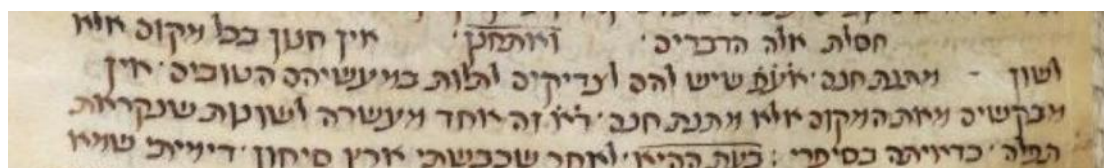 חסלת אלה הדברים · ואתחנן · אין חנון בכל מקום אלא
לשון - מתנת חנם · אעפ שיש להם לצדיקים לתלות במעשיהם הטובים · אין
מבקשים מאת המקום אלא מתנת חנם · דא זה אחד מעשרה לשונות שנקראת
תפלה · כדאיתא בספרי : בעת ההיא · לאחר שכבשתי ארץ סיחון · דימיתי שמא